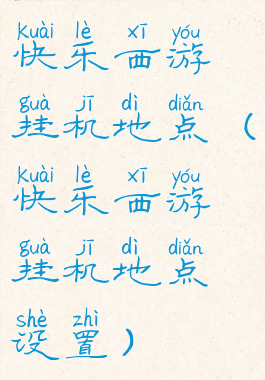 kuài lè xī yóu
快乐西游
guà jī dì diǎn
挂机地点（
kuài lè xī yóu
快乐西游
guà jī dì diǎn
挂机地点
shè zhì
设置）